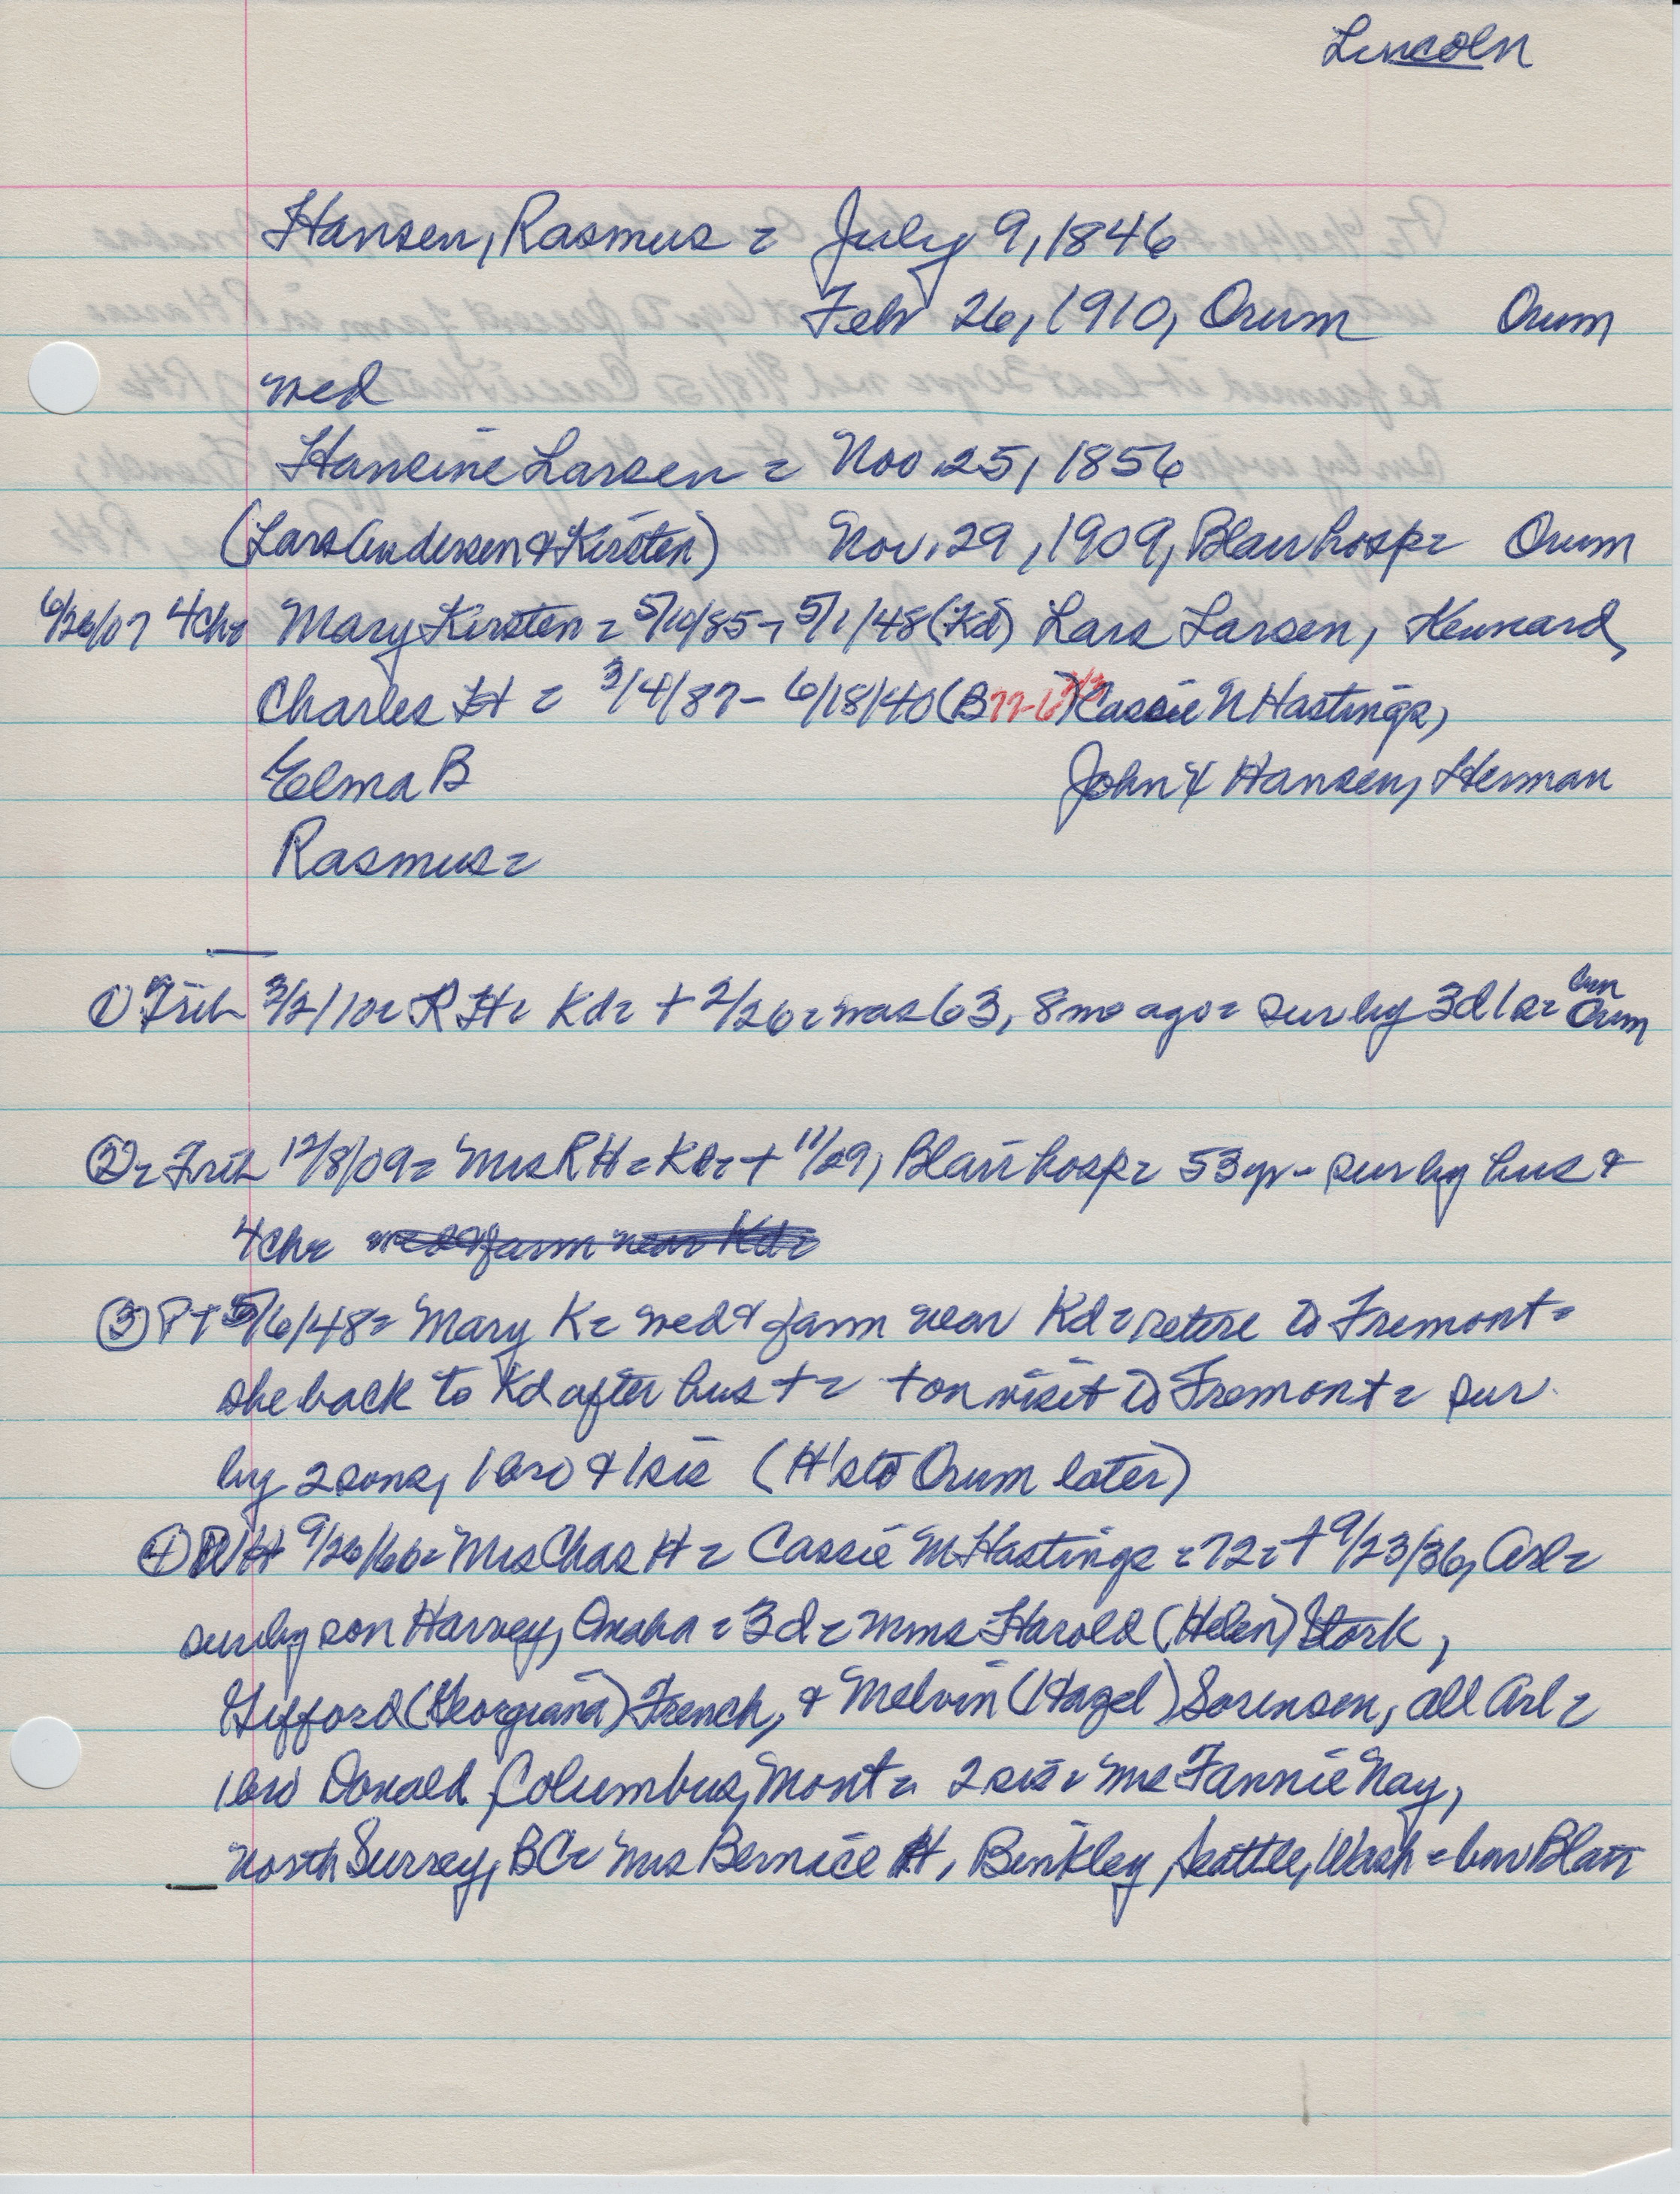 Lincoln
Hansen, Rasmus = July 9, 1846
Feb 26, 1910, Orum Orum
wed
Hansine Larsen = Nov 25, 1856
(Lars Andersen & Kirsten) Nov. 29, 1909, Blair hosp = Orum
6/26/07 4 ch = Mary Kirsten = 5/10/85 - 5/1/48 (Kd) Lars Larsen, Kennard,
Charles H = 3/4/87 - 6/18/40 (B 77-6 ) Cassie N Hastings,
Elma B John Hansen, Herman
Rasmus =
① Trib 3/2/10 = R H = Kd = + 2/26 = was 63, 8 mo ago = sur by 3d 1s = bur Orum
② = Trib 12/8/09 = Mrs R H = Kd = + 11/29, Blair hosp = 53 yr - sur by hus &
4 ch = wed & farm near Kd =
③ PT 5/6/48 = Mary K = wed & farm near Kd = retire to Fremont =
she back to Kd after hus + = + on visit to Fremont = sur
by 2 sons, 1 bro & 1 sis (H's to Orum later)
④ 9/26/66 = Mrs Chas H = Cassie M Hastings = 72 = + 9/23/36, Arl =
sur by son Harvey, Omaha = 3 d = Mms Harold (Helen) Stork,
Gifford (Georgiana) French, & Melvin (Hazel) Sorensen, all Arl =
1 bro Donald, Columbus, Mont = 2 sis = Mrs Fannie Nay,
North Surrey, BC = Mrs Bernice H, Binkley, Seattle, Wash = bur Blair